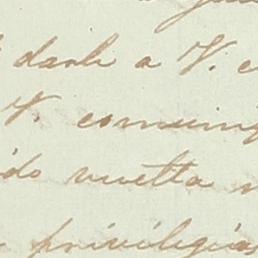 darle a V.
V. comuniq
do vuelta
privilegia